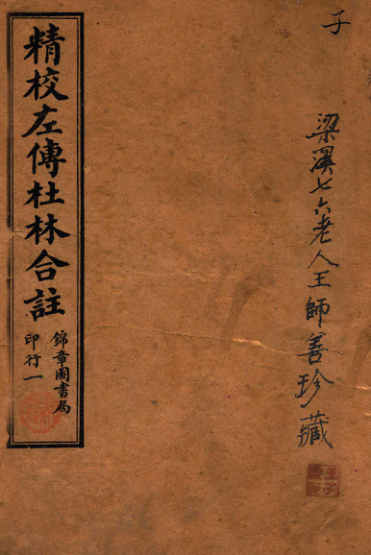 子
梁溪七六老人王師善珍藏
精校左傳杜林合註
錦章圖書局
印行一